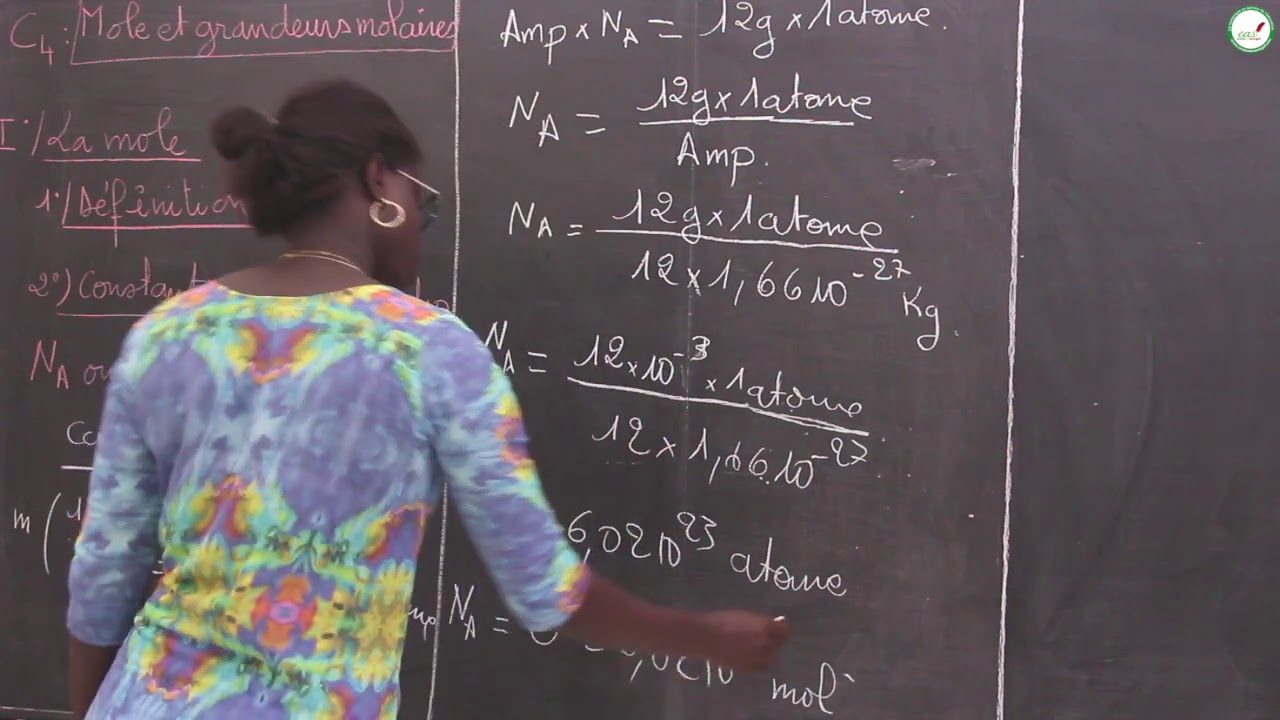 C4 : Mole et grandeurs molaires
I°/ La mole
1°/ Définition
2°) Constant
NA ou
m ( 1
Amp x NA = 12g x 1atome.
NA = 12g x 1atome
Amp.
NA = 12g x 1atome
12 x 1,66 10^-27 Kg.
NA = 12 x 10^-3 x 1atome
12 x 1,66 10^-27
6,02 10^23 atome
NA =
mol
eas!